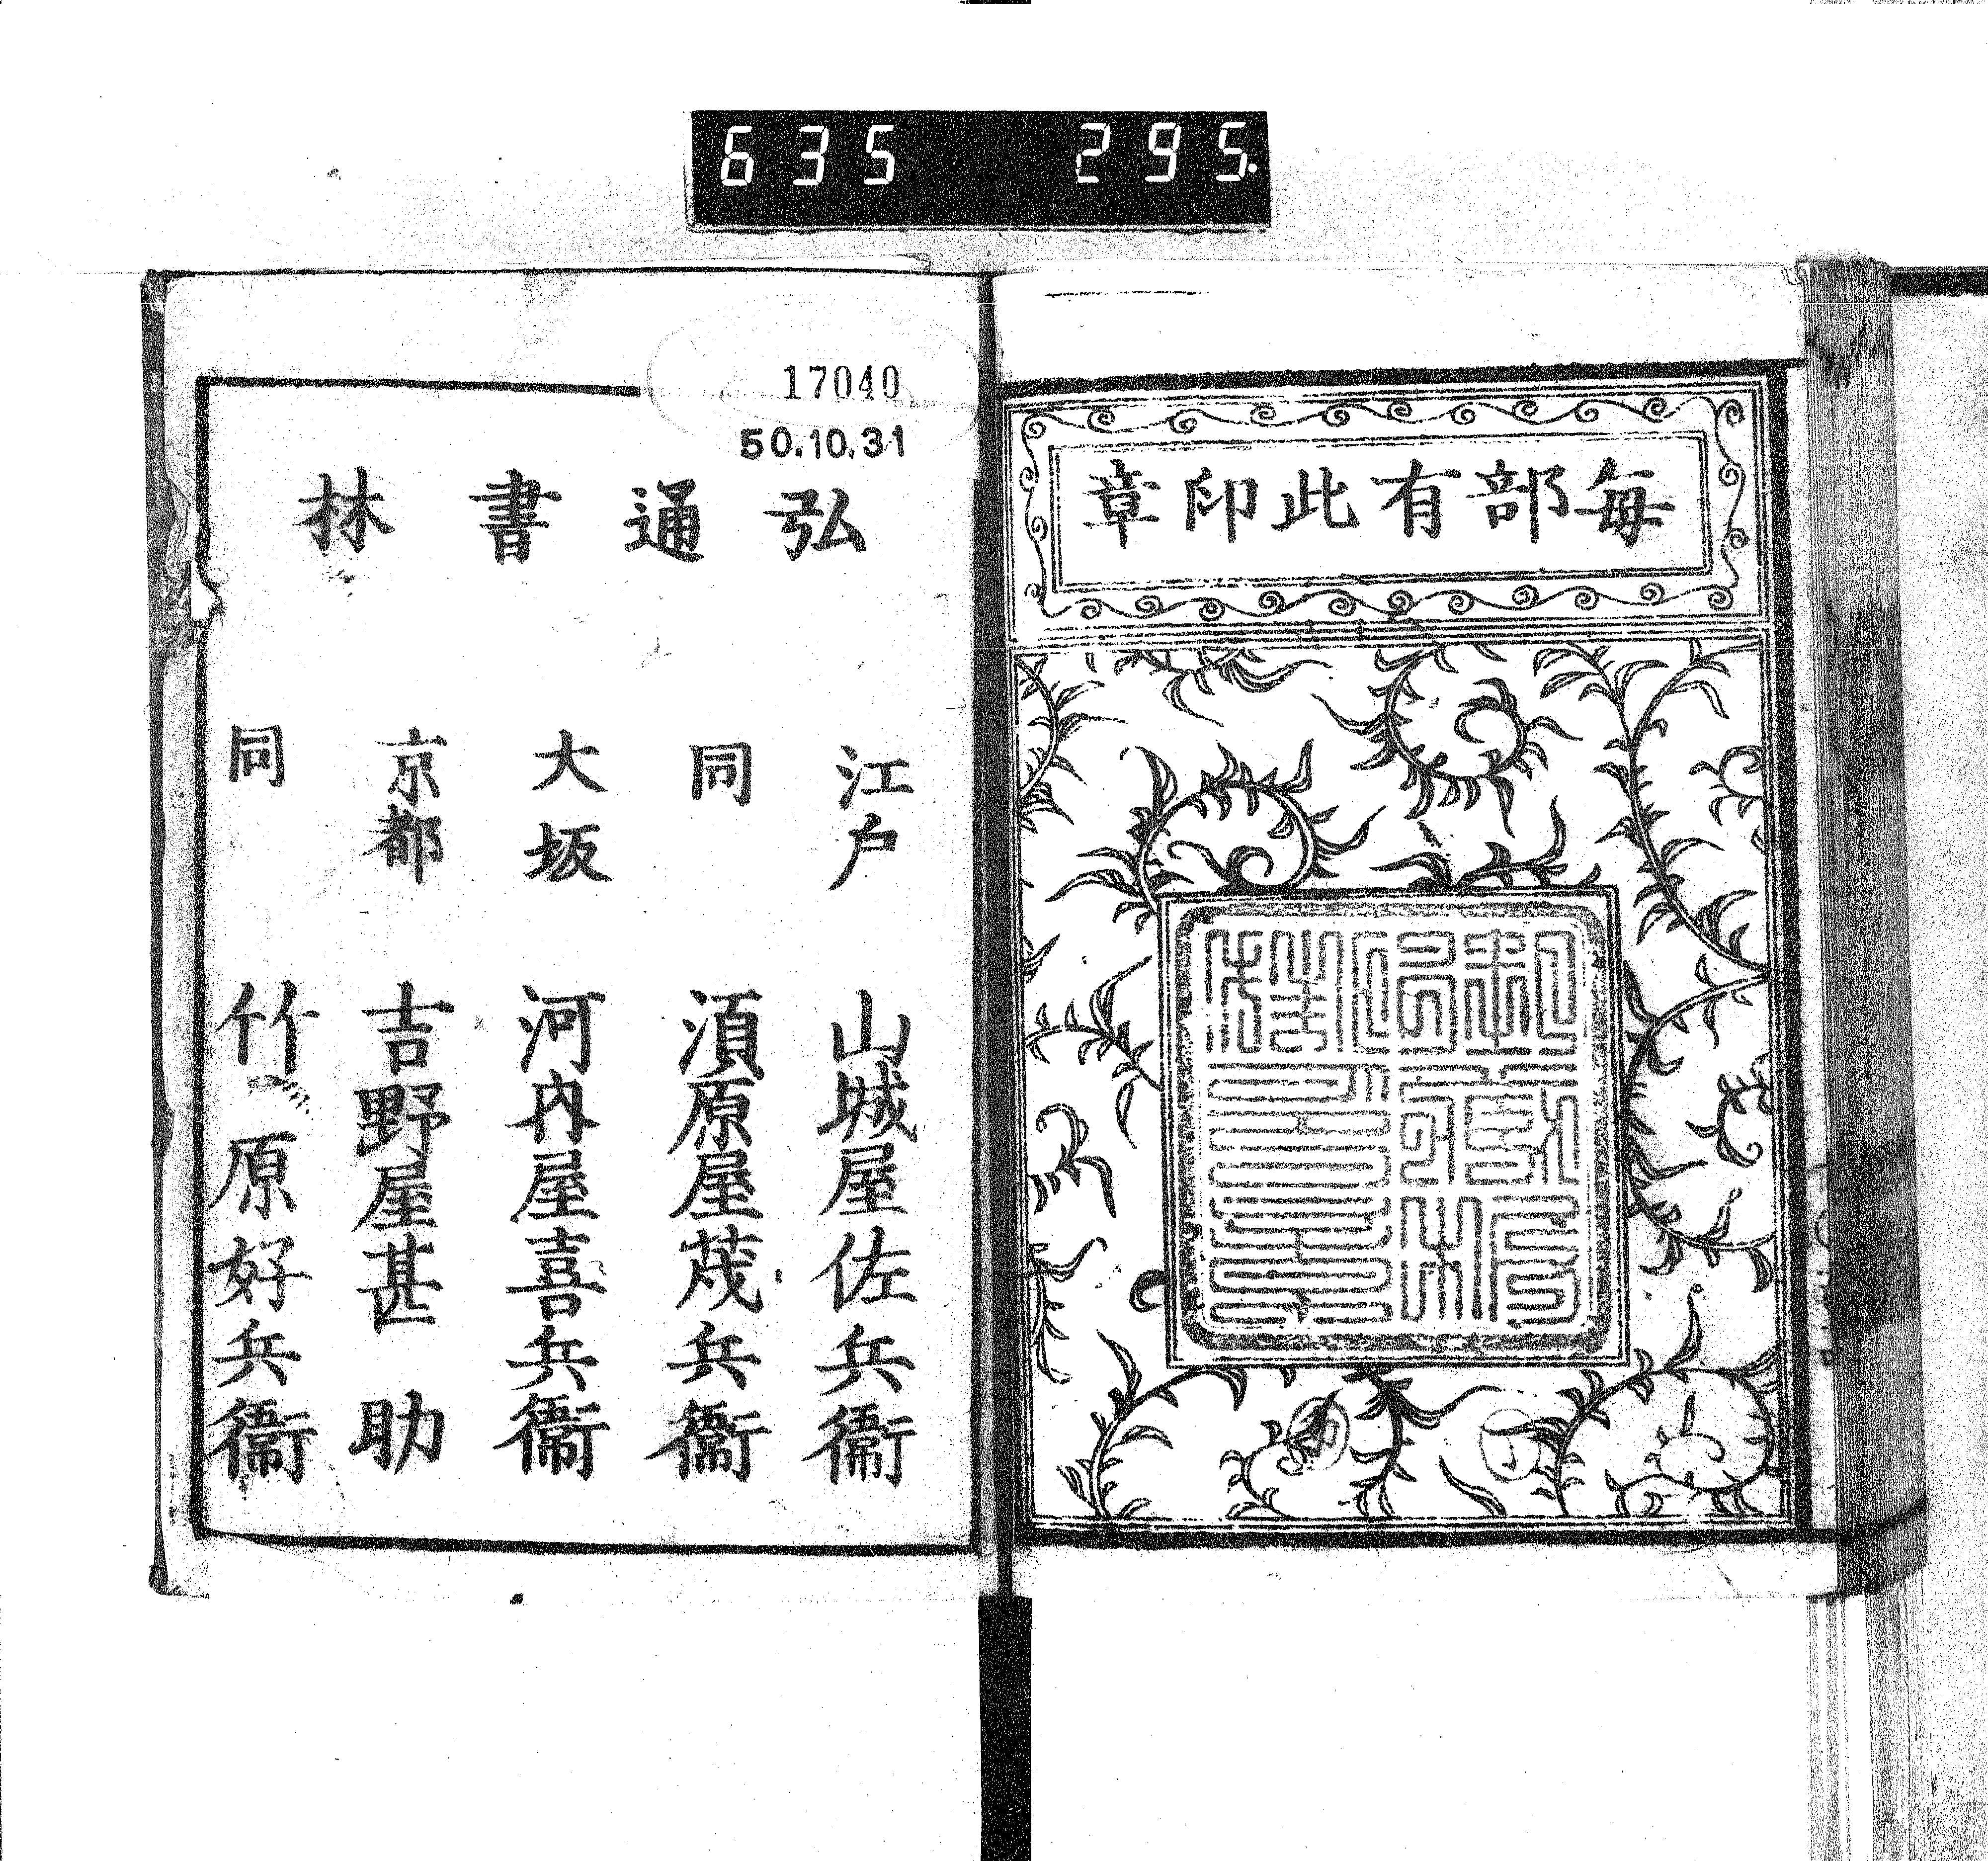 635 295.
毎部有此印章
17040
50.10.31
弘通書林
江戸 山城屋佐兵衞
同 須原屋茂兵衞
大坂 河内屋喜兵衞
京都 吉野屋甚助
同 竹原好兵衞